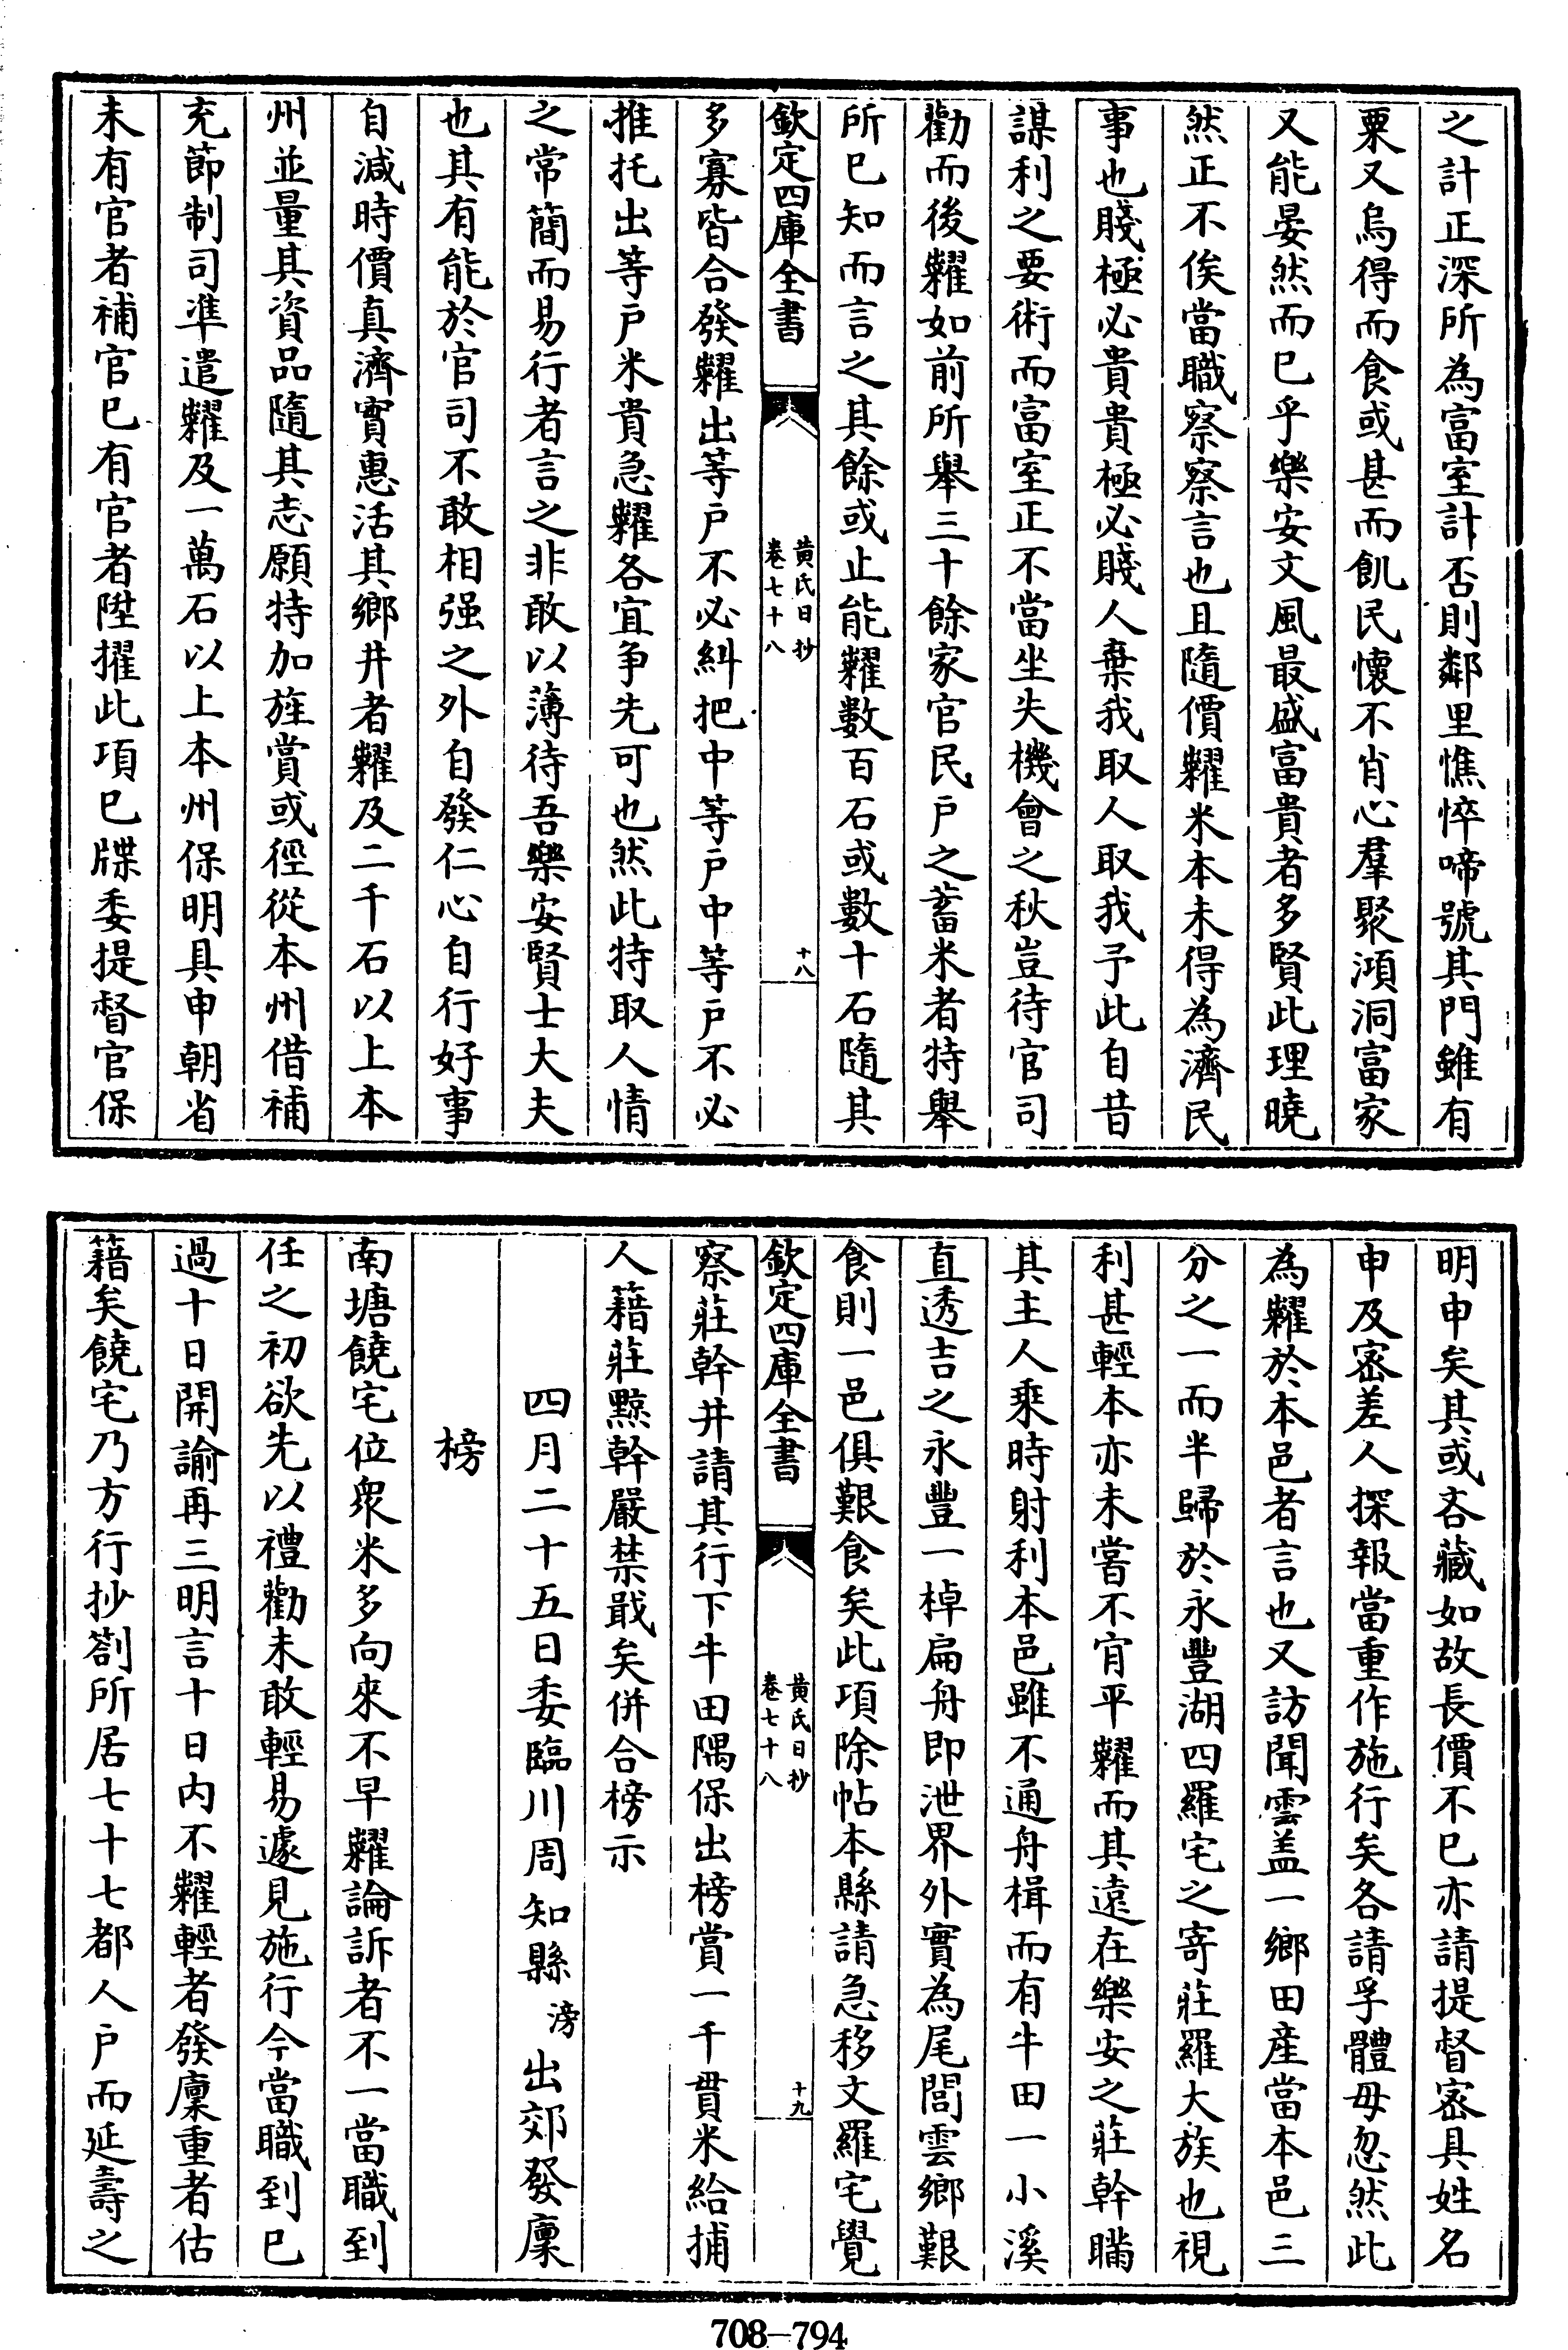 之計正深所為富室計否則鄰里憔悴啼號其門雖有
粟又烏得而食或甚而飢民懷不肖心羣聚澒洞富家
又能晏然而已乎樂安文風最盛富貴者多賢此理曉
然正不俟當職察察言也且隨價糶米本未得為濟民
事也賤極必貴貴極必賤人棄我取人取我予此自昔
謀利之要術而富室正不當坐失機會之秋豈待官司
勸而後糶如前所舉三十餘家官民戶之蓄米者特舉
所已知而言之其餘或止能糶數百石或數十石隨其
欽定四庫全書
黄氏日抄
卷七十八
十八
多寡皆合發糶出等戶不必糾把中等戶中等戶不必
推托出等戶米貴急糶各宜争先可也然此特取人情
之常簡而易行者言之非敢以薄待吾樂安賢士大夫
也其有能於官司不敢相强之外自發仁心自行好事
自減時價真濟實惠活其鄉井者糶及二千石以上本
州並量其資品隨其志願特加旌賞或徑從本州借補
充節制司準遣糶及一萬石以上本州保明具申朝省
未有官者補官已有官者陞擢此項已牒委提督官保
明申矣其或吝藏如故長價不已亦請提督密具姓名
申及密差人探報當重作施行矣各請孚體毋忽然此
為糶於本邑者言也又訪聞雲盖一鄉田產當本邑三
分之一而半歸於永豐湖四羅宅之寄莊羅大族也視
利甚輕本亦未嘗不肯平糶而其遠在樂安之莊幹瞞
其主人乘時射利本邑雖不通舟楫而有牛田一小溪
直透吉之永豐一棹扁舟即泄界外實為尾閭雲鄉艱
食則一邑俱艱食矣此項除帖本縣請急移文羅宅覺
欽定四庫全書
黄氏日抄
卷七十八
十九
察莊幹并請其行下牛田隅保出榜賞一千貫米給捕
人籍莊黥幹嚴禁戢矣併合榜示
四月二十五日委臨川周知縣滂出郊發廩
榜
南塘饒宅位衆米多向來不早糶論訴者不一當職到
任之初欲先以禮勸未敢輕易遽見施行今當職到已
過十日開諭再三明言十日内不糶輕者發廩重者估
籍矣饒宅乃方行抄劄所居七十七都人戶而延壽之
708-794